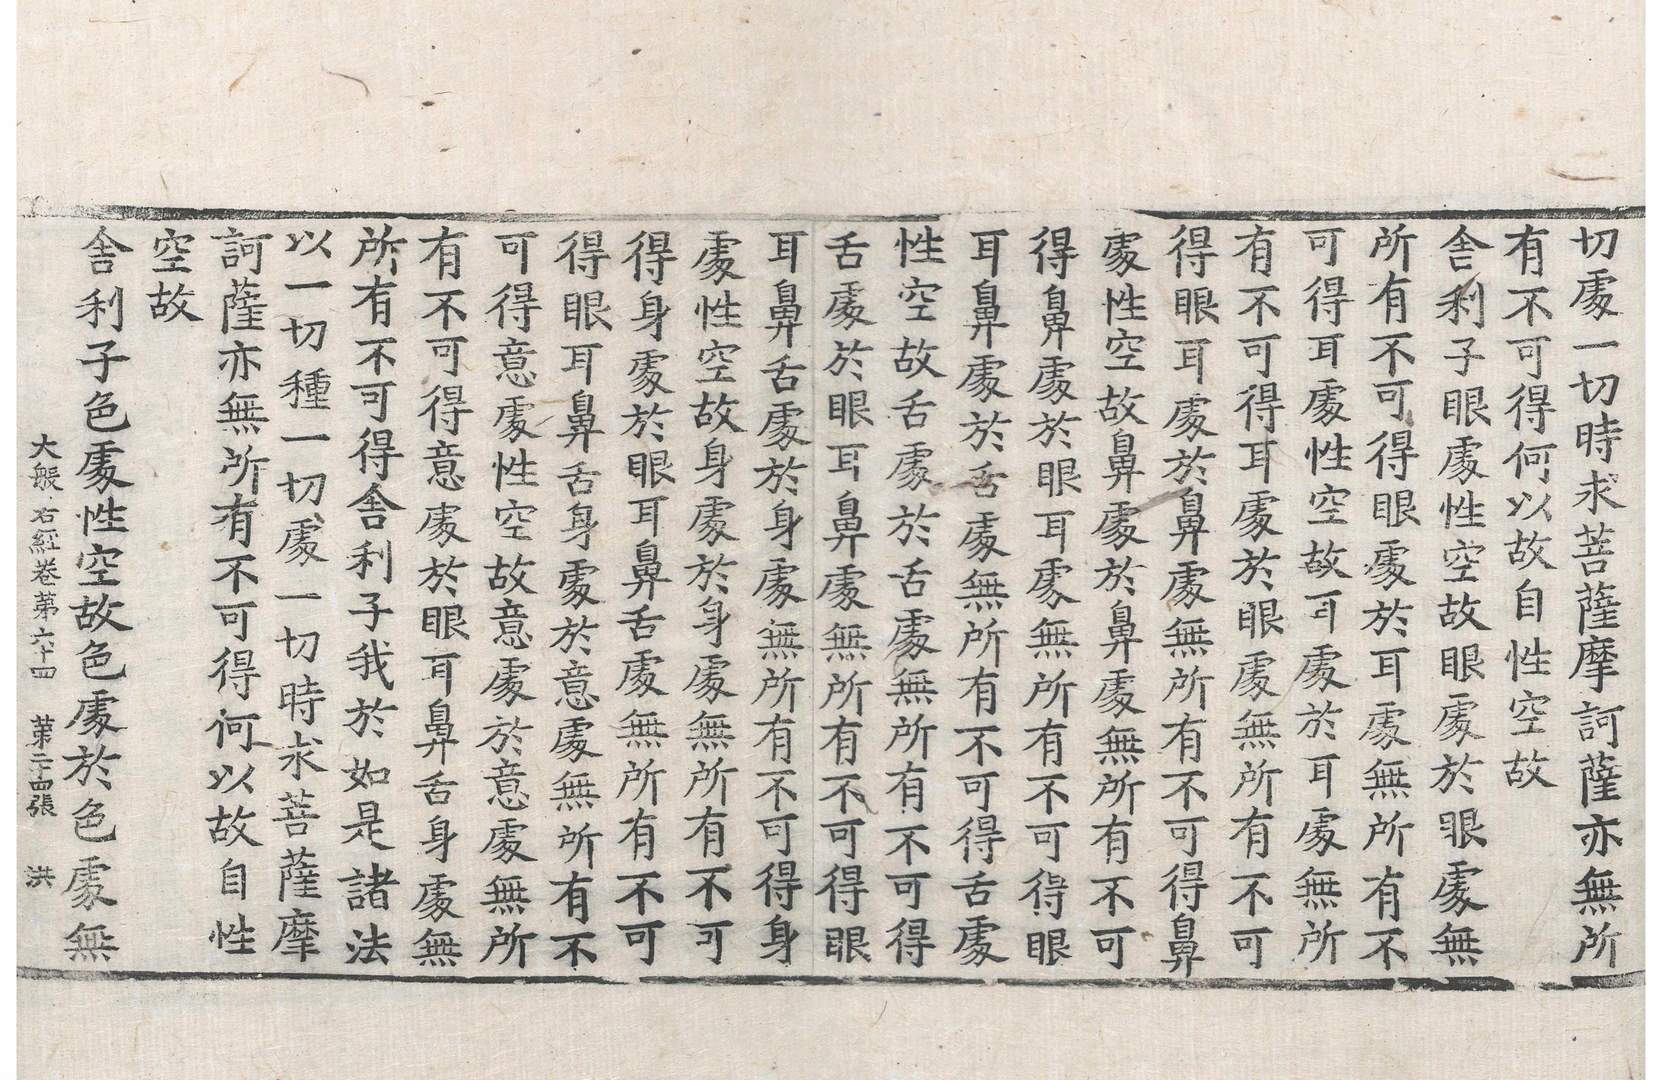 切處一切時求菩薩摩訶薩亦無所
有不可得何以故自性空故
舎利子眼處性空故眼處於眼處無
所有不可得眼處於耳處無所有不
可得耳處性空故耳處於耳處無所
有不可得耳處於眼處無所有不可
得眼耳處於鼻處無所有不可得鼻
處性空故鼻處於鼻處無所有不可
得鼻處於眼耳處無所有不可得眼
耳鼻處於舌處無所有不可得舌處
性空故舌處於舌處無所有不可得
舌處於眼耳鼻處無所有不可得眼
耳鼻舌處於身處無所有不可得身
處性空故身處於身處無所有不可
得身處於眼耳鼻舌處無所有不可
得眼耳鼻舌身處於意處無所有不
可得意處性空故意處於意處無所
有不可得意處於眼耳鼻舌身處無
所有不可得舎利子我於如是諸法
以一切種一切處一切時求菩薩摩
訶薩亦無所有不可得何以故自性
空故
舎利子色處性空故色處於色處無
大般若經卷第六十四 第二十四張 洪